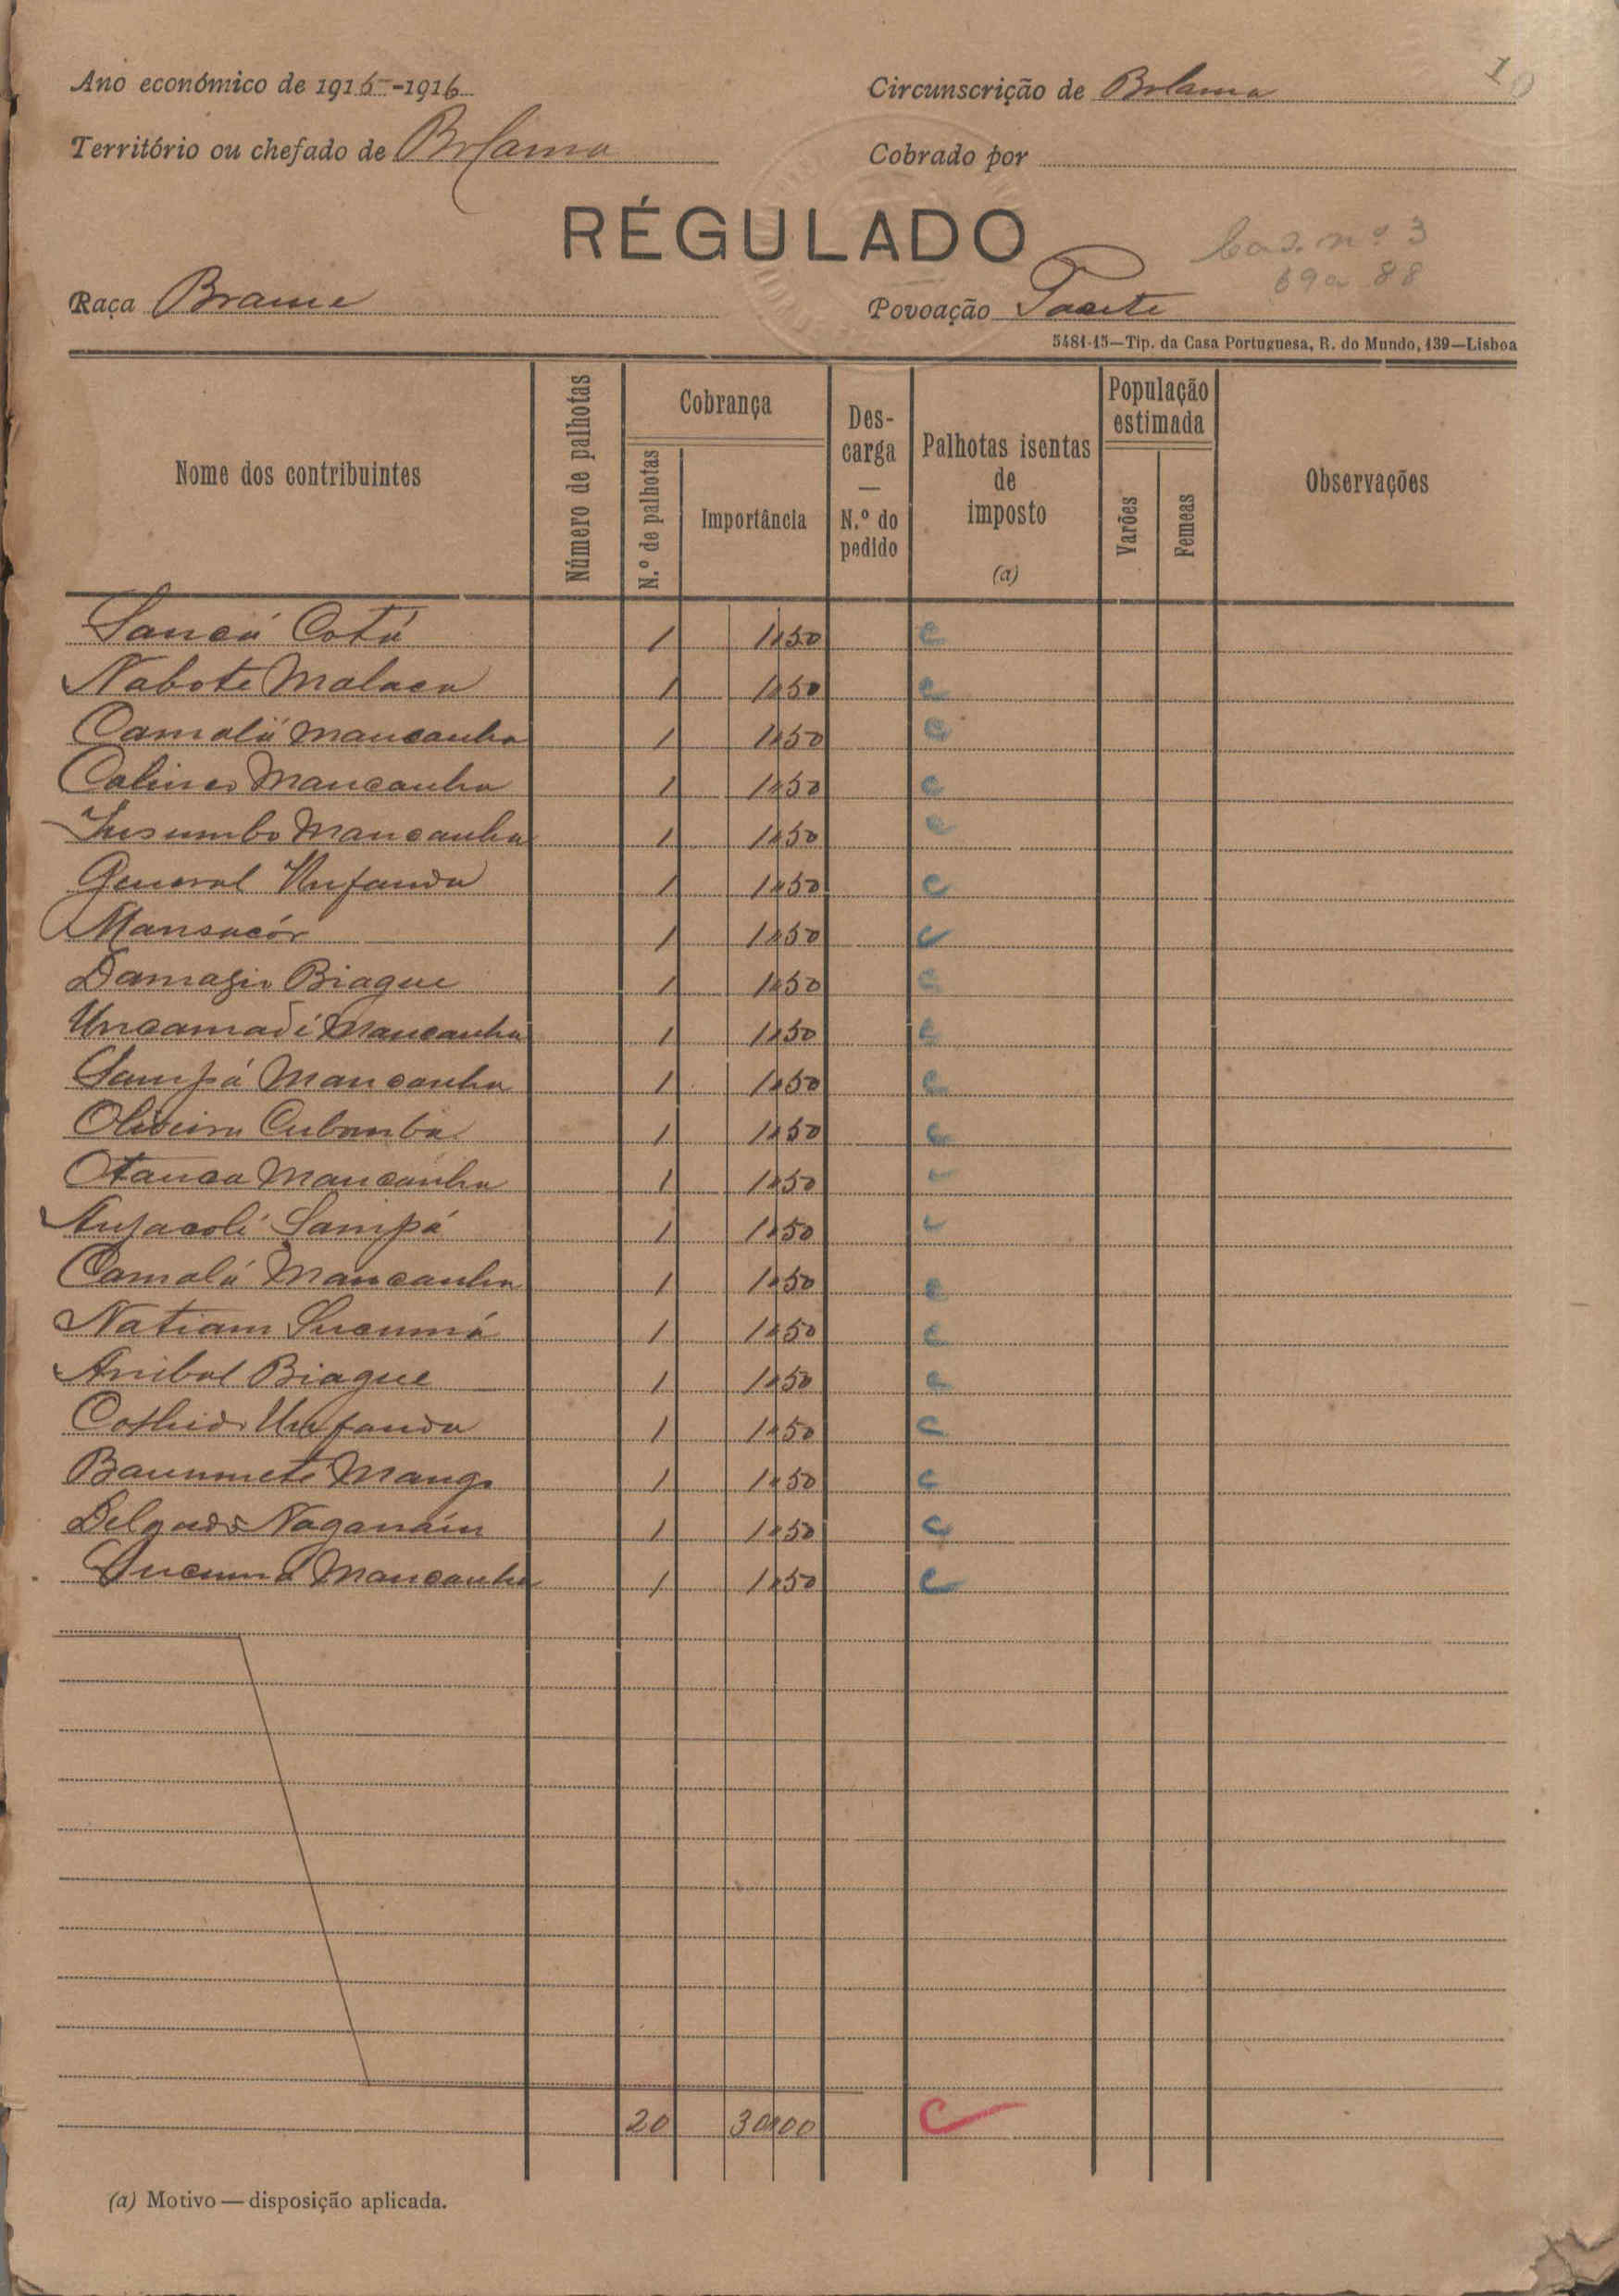 10
Ano económico de 1915-1916
Circunscrição de Bolama
Território ou chefado de Bolama
Cobrado por
RÉGULADO
Cad. nº 3
69 a 88
Raça Brame
Povoação
5481-15—Tip. da Casa Portuguesa, R. do Mundo, 139—Lisboa
Nome dos contribuintes
Número de palhotas
Cobrança
N.º de palhotas
Importância
Descarga — N.º do pedido
Palhotas isentas de imposto (a)
População estimada
Varões
Femeas
Observações
Sancá Cotá 1 1$50 C
Nabote Malaca 1 1$50 C
Camalá Mancanha 1 1$50 C
Mancanha 1 1$50 C
Mancanha 1 1$50 C
General Unfanda 1 1$50 C
Mansucór 1 1$50 C
Damazio Biague 1 1$50 C
Uncamadi Mancanha 1 1$50 C
Sampá Mancanha 1 1$50 C
Oliveira 1 1$50 C
Otanca Mancanha 1 1$50 C
Sampá 1 1$50 C
Camalá Mancanha 1 1$50 C
Natiam Sucumá 1 1$50 C
Anibal Biague 1 1$50 C
Unfanda 1 1$50 C
Mango 1 1$50 C
Delgado 1 1$50 C
Sucumá Mancanha 1 1$50 C
20 30$00 C
(a) Motivo — disposição aplicada.